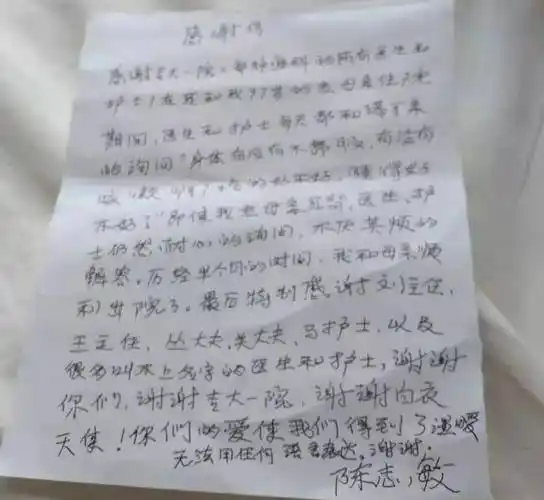 感谢信
感谢吉大一院，那种海科的所有医生和
护士！在我和我97岁的老母亲住院
期间，医生和护士每天都和蔼可亲
的询问“身体有没有不舒服，有没有
咳嗽，吃的好不好，睡得好
不好”即使我老母亲耳聋，医生、护
士仍然耐心的询问，不厌其烦的
解答。历经半个月的时间，我和母亲顺
利出院了。最后特别感谢刘主任、
王主任、丛大夫、关大夫、马护士，以及
很多叫不上名字的医生和护士，谢谢
你们，谢谢吉大一院，谢谢白衣
天使！你们的爱使我们得到了温暖
无法用任何语言表达，谢谢！
陈志敏